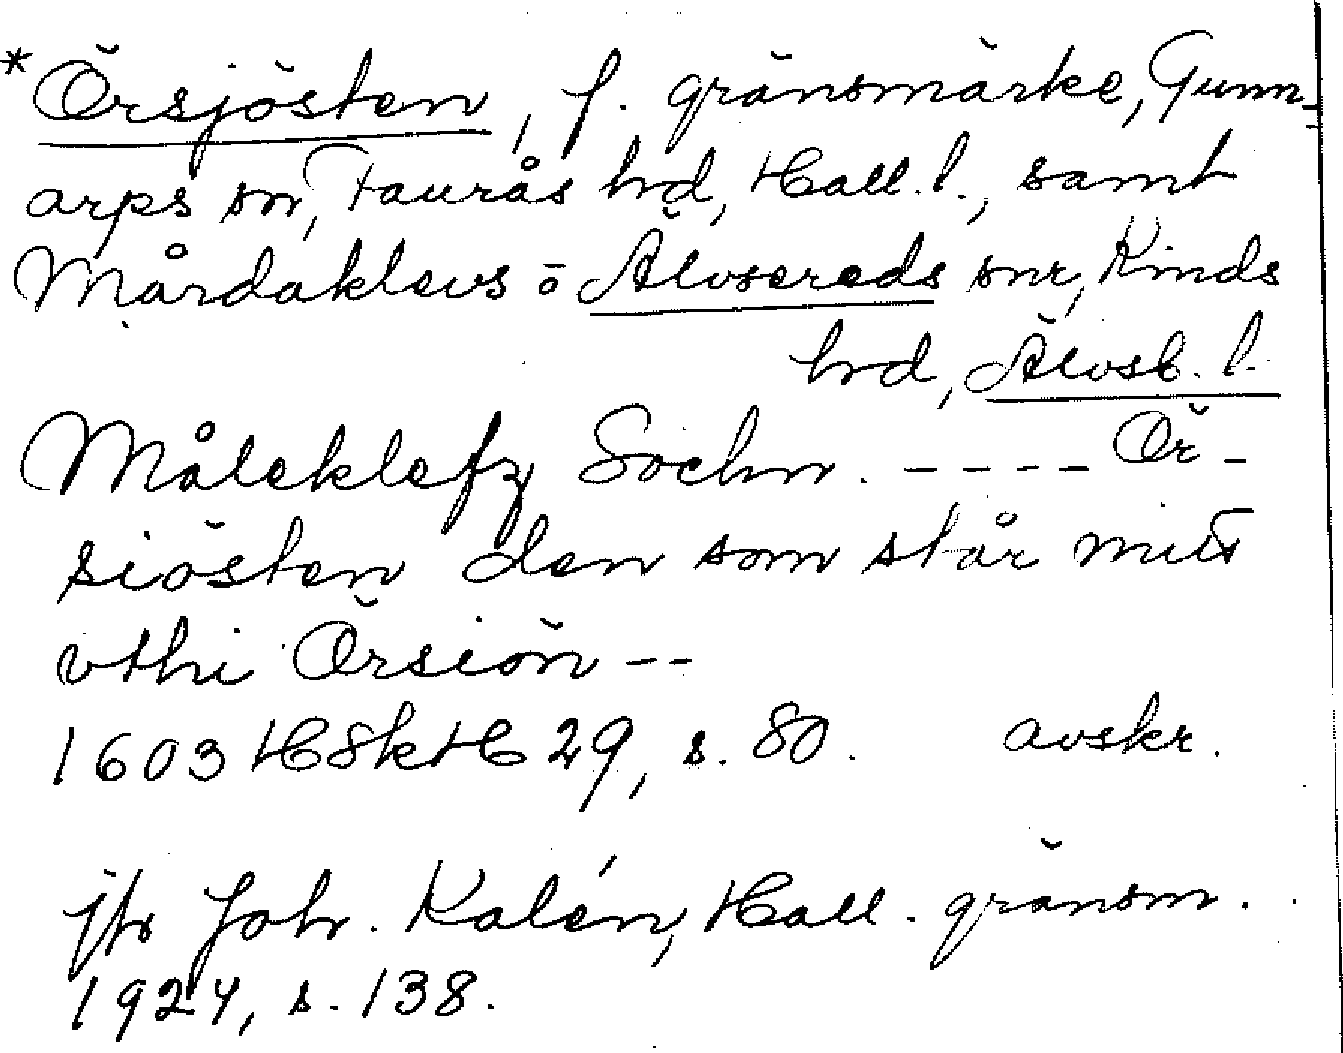 *Örsjösten, f. gränsmärke, Gunn-
arps sn, Faurås hd, Hall. l., samt
Mårdaklevs o Älvsereds snr, Kinds
hd, Älvsb. l.
Måleklefz Sochn. ---- Ör-
siösten den som står mitt
vthi Örsiön --
1603 HSkH 29, s. 80. avskr.
jfr Joh. Kalén, Hall. gränsm.
1924, s. 138.